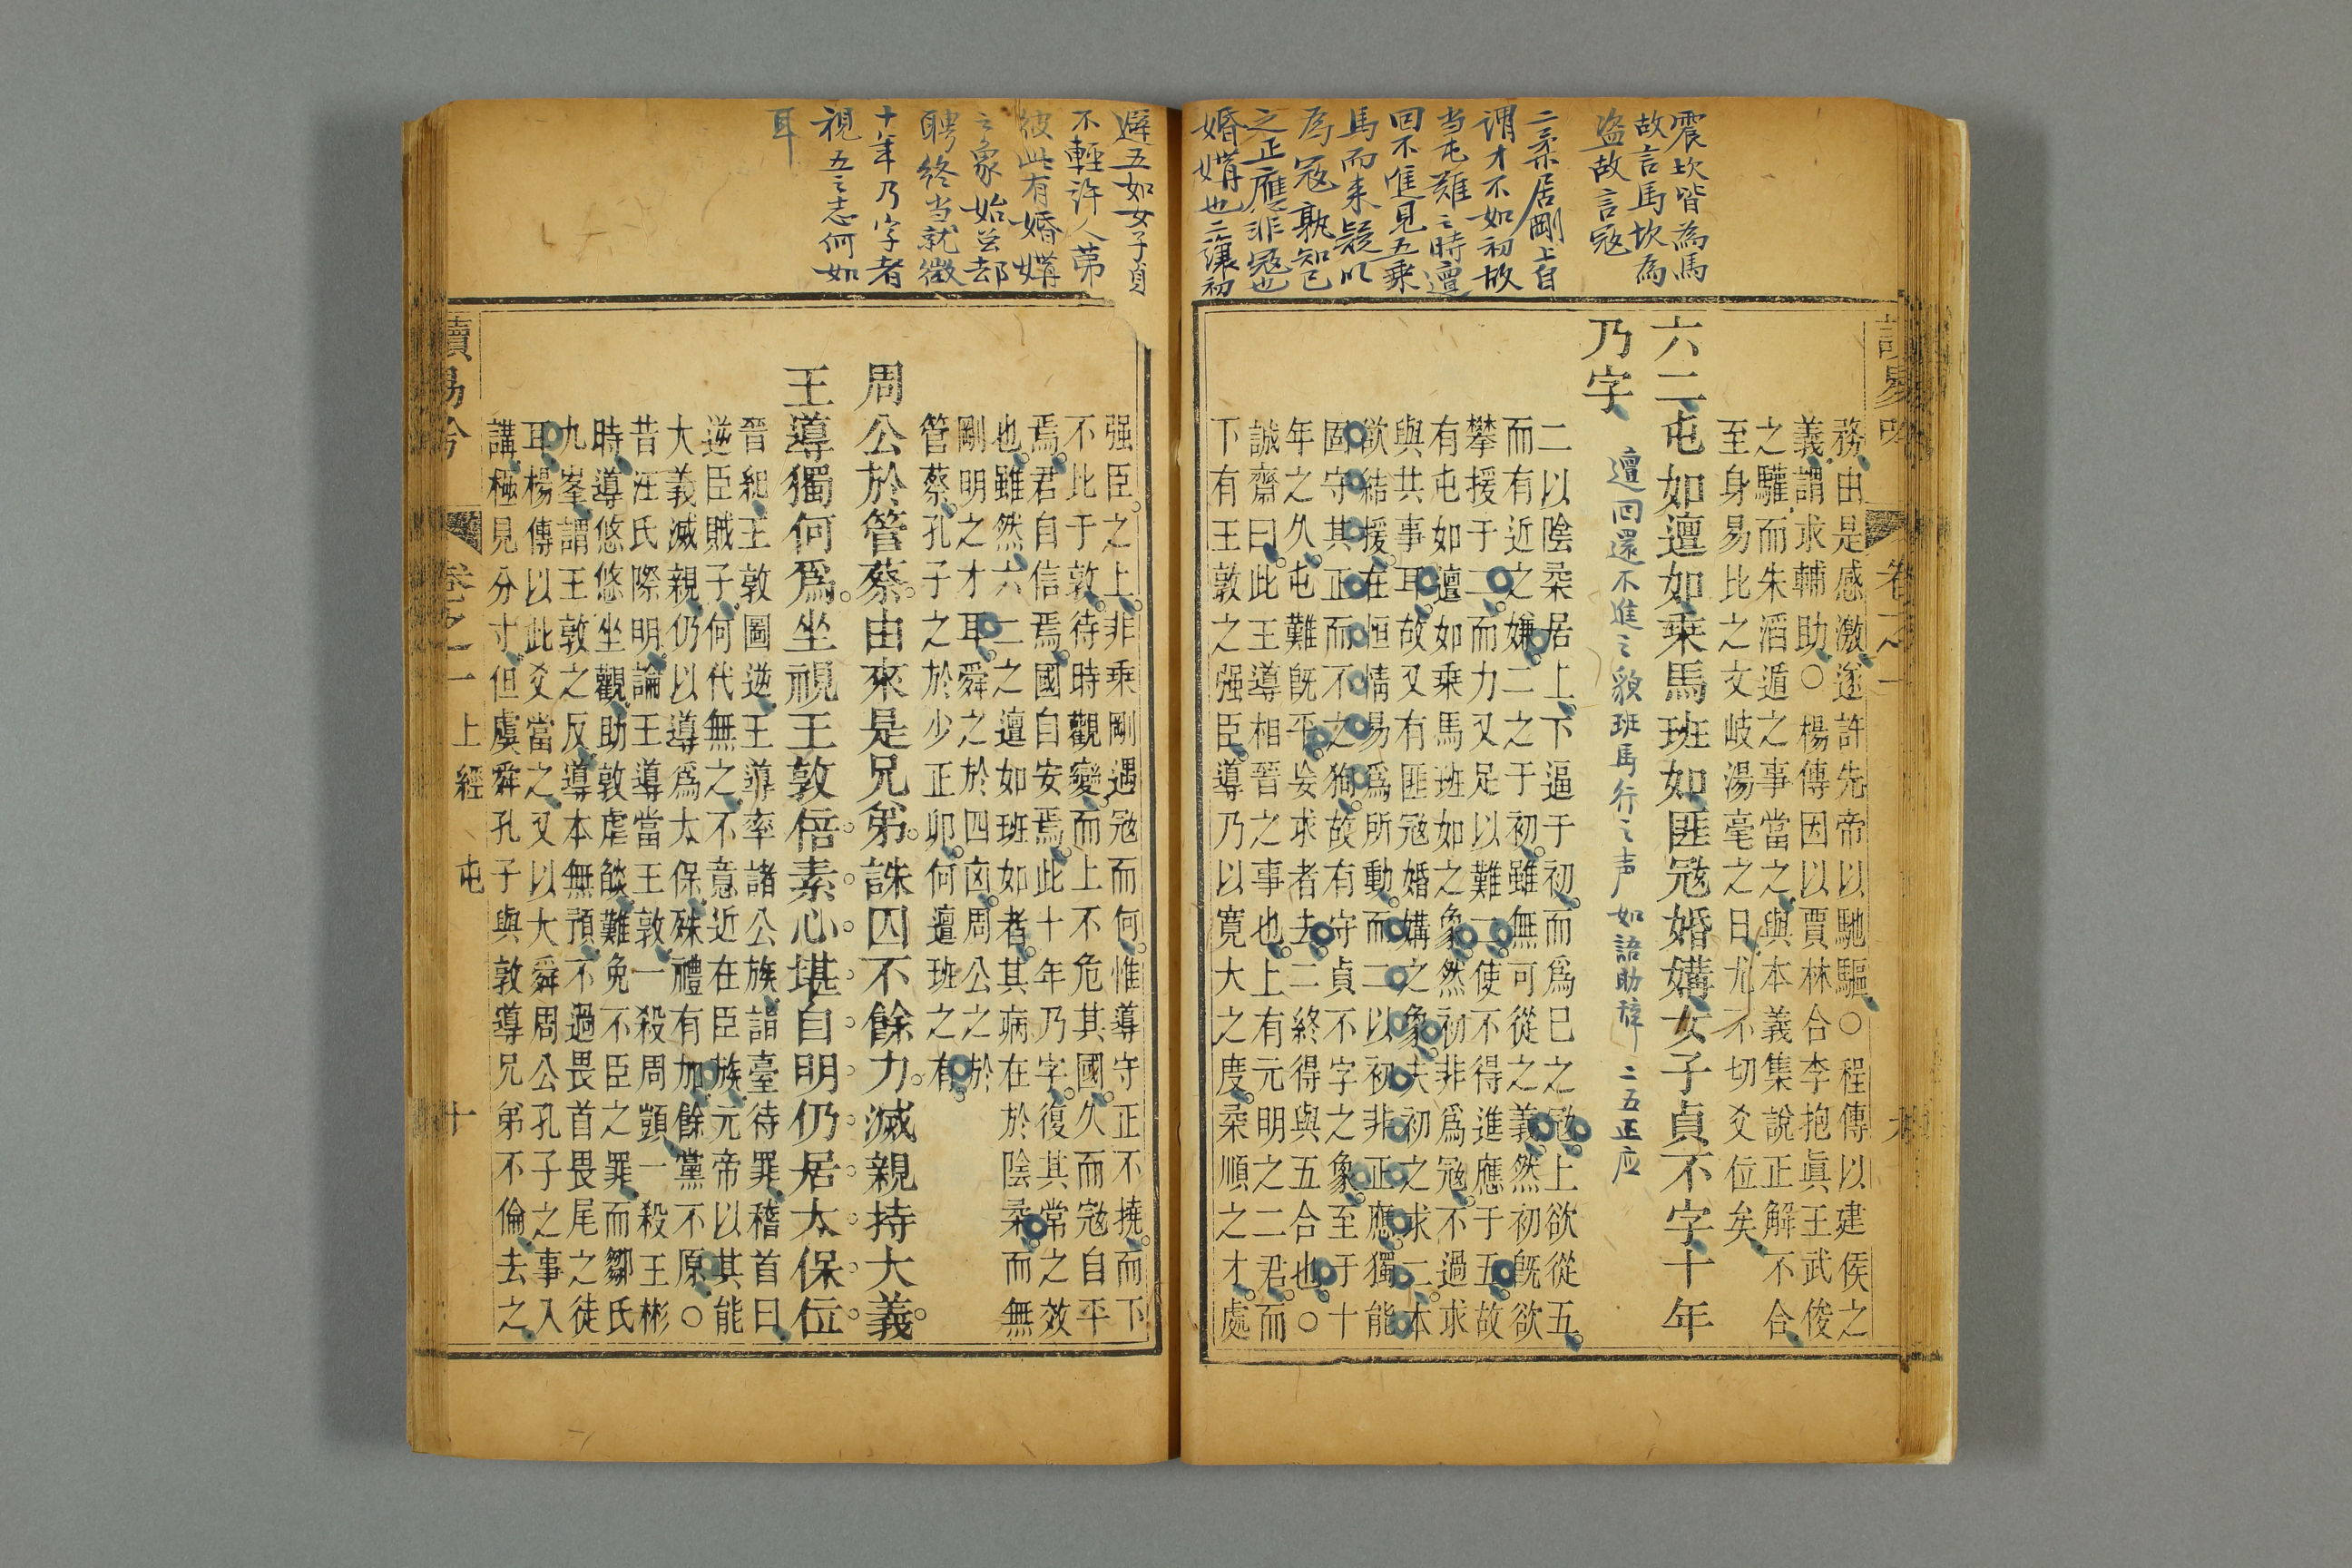 震坎皆為馬
故言馬坎為
盗故言冦
二柔居剛上自
謂才不如初故
当屯難之時邅
回不進見五乘
馬而来疑以
為冦孰知已
之正應非冦也
婚媾也二讓初
務由是感激遂許先帝以馳驅○程傳以建侯之
義謂求輔助○楊傳因以賈林合李抱眞王武俊
之驩而朱滔遁之事當之與本義集說正解不合
至身易比之文岐湯毫之日尤不切爻位矣
六二屯如邅如乗馬班如匪冦婚媾女子貞不字十年
乃字
邅回還不進之貌班馬行之声如語助辝 二五正应
二以陰柔居上下逼于初而爲巳之冦上欲從五
而有近之嫌二之于初雖無可從之義然初旣欲
攀援于二而力又足以難二使不得進應于五故
有屯如邅如乗馬班如之象然初非爲冦不過求
與共事耳故又有匪冦婚媾之象夫初之求二本
欲結援在恒情易爲所動而二以初非正應獨能
固守其正而不之狥故有守貞不字之象至于十
年之久屯難旣平妄求者去二終得與五合也○
誠齋曰此王導相晉之事也上有元明之二君而
下有王敦之强臣導乃以寛大之度柔順之才處
避五如女子貞
不輕許人苐
彼此有婚媾
之象始雖却
聘終当就徵
十年乃字者
視五之志何如
耳
强臣之上非乗剛遇冦而何惟導守正不撓而下
不比于敦待時觀變而上不危其國久而冦自平
焉君自信焉國自安焉此十年乃字復其常之效
也雖然六二之邅如班如者其病在於陰柔而無
剛明之才耳舜之於四凶周公之於
管蔡孔子之於少正卯何邅班之有
周公於管蔡由來是兄弟誅四不餘力滅親持大義
王導獨何爲坐視王敦倍素心堪自明仍居太保位
晉紀王敦圖逆王導率諸公族詣臺待罪稽首曰
逆臣賊子何代無之不意近在臣族元帝以其能
大義滅親仍以導爲太保殊禮有加餘黨不原○
昔汪氏際明論王導當王敦一殺周顗一殺王彬
時導悠悠坐觀助敦虐燄難免不臣之罪而鄒氏
九峯謂王敦之反導本無預不過畏首畏尾之徒
耳楊傳以此爻當之又以大舜周公孔子之事入
講極見分寸但虞舜孔子與敦導兄弟不倫去之
讀易吟 卷之一 上經 屯 十